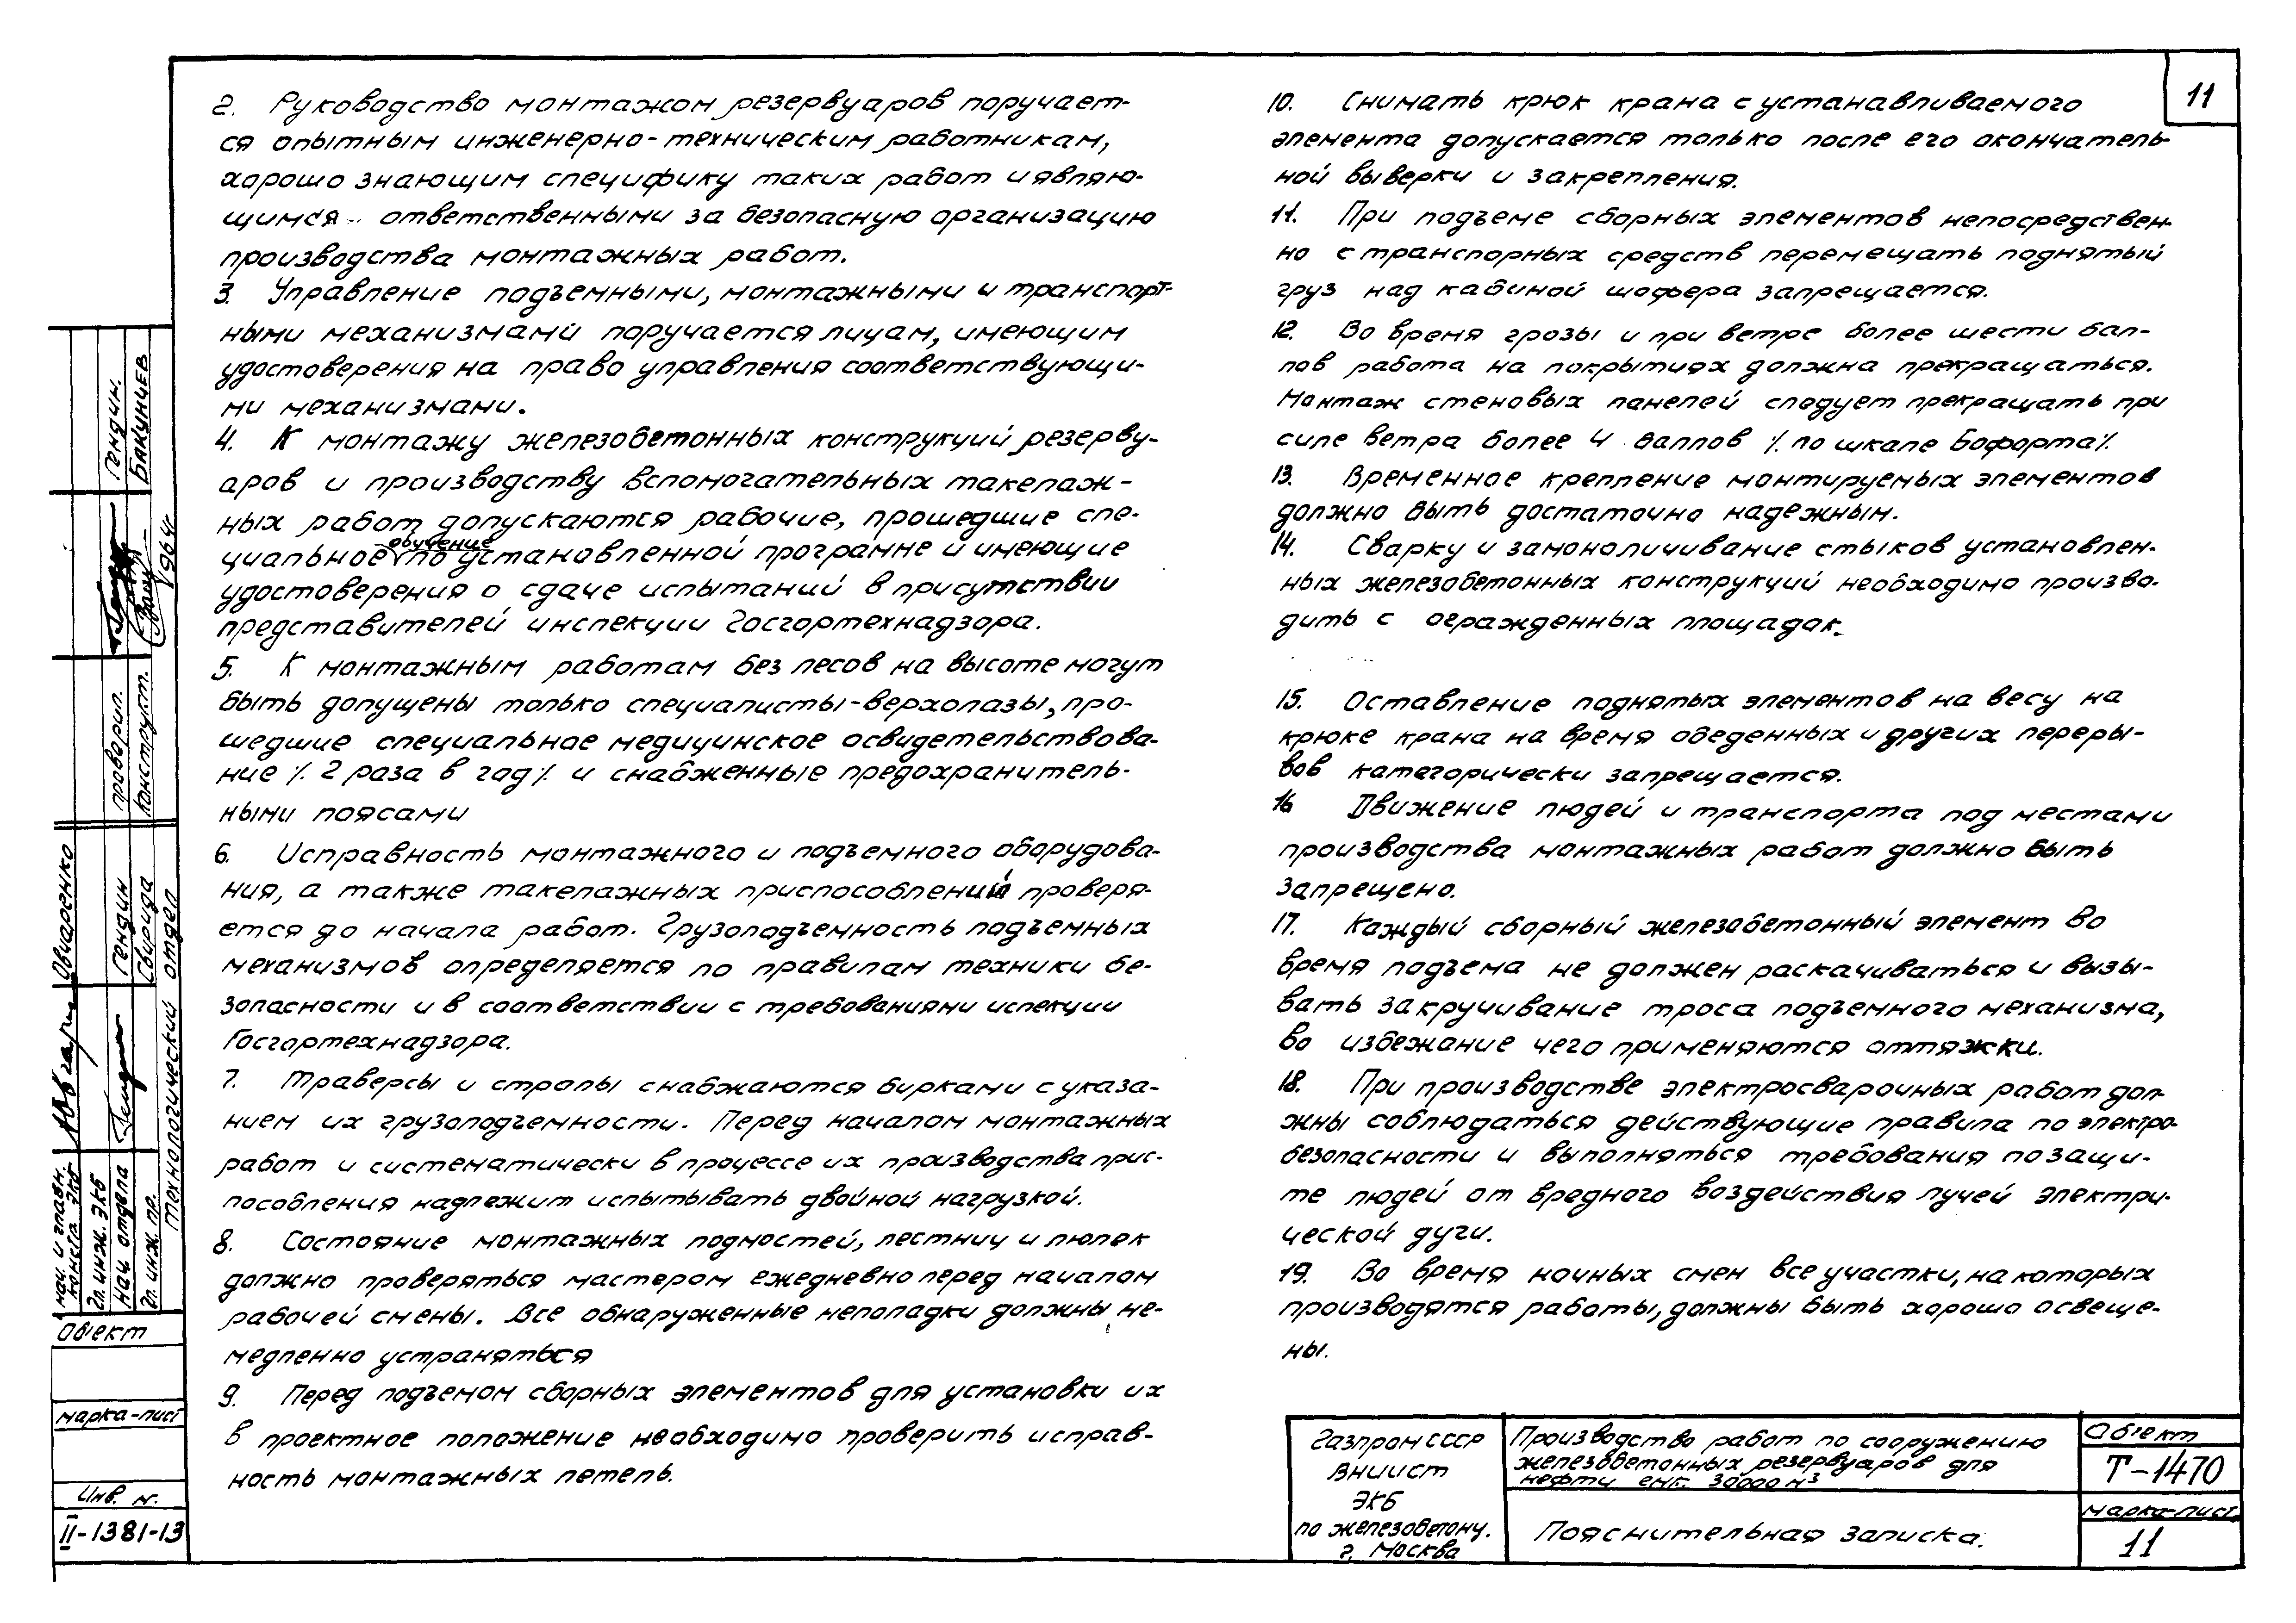 11
2. Руководство монтажом резервуаров поручает-
ся опытным инженерно-техническим работникам,
хорошо знающим специфику таких работ и являю-
щимся ответственными за безопасную организацию
производства монтажных работ.
3. Управление подъемными, монтажными и транспорт-
ными механизмами поручается лицам, имеющим
удостоверения на право управления соответствующи-
ми механизмами.
4. К монтажу железобетонных конструкций резерву-
аров и производству вспомогательных такелаж-
ных работ допускаются рабочие, прошедшие спе-
циальное обучение по установленной программе и имеющие
удостоверения о сдаче испытаний в присутствии
представителей инспекции Госгортехнадзора.
5. К монтажным работам без лесов на высоте могут
быть допущены только специалисты-верхолазы, про-
шедшие специальное медицинское освидетельствова-
ние /. 2 раза в год /. и снабженные предохранитель-
ными поясами
6. Исправность монтажного и подъемного оборудова-
ния, а также такелажных приспособлений проверя-
ется до начала работ. Грузоподъемность подъемных
механизмов определяется по правилам техники бе-
зопасности и в соответствии с требованиями испекции
Госгортехнадзора.
7. Траверсы и стропы снабжаются бирками с указа-
нием их грузоподъемности. Перед началом монтажных
работ и систематически в процессе их производства прис-
пособления надлежит испытывать двойной нагрузкой.
8. Состояние монтажных подмостей, лестниц и люлек
должно проверяться мастером ежедневно перед началом
рабочей смены. Все обнаруженные неполадки должны не-
медленно устраняться
9. Перед подъемом сборных элементов для установки их
в проектное положение необходимо проверить исправ-
ность монтажных петель.
10. Снимать крюк крана с устанавливаемого
элемента допускается только после его окончатель-
ной выверки и закрепления.
11. При подъеме сборных элементов непосредствен-
но с транспорных средств перемещать поднятый
груз над кабиной шофера запрещается.
12. Во время грозы и при ветре более шести бал-
лов работа на покрытиях должна прекращаться.
Монтаж стеновых панелей следует прекращать при
силе ветра более 4 баллов /. по шкале Бофорта /.
13. Временное крепление монтируемых элементов
должно быть достаточно надежным.
14. Сварку и замоноличивание стыков установлен-
ных железобетонных конструкций необходимо произво-
дить с огражденных площадок.
15. Оставление поднятых элементов на весу на
крюке крана на время обеденных и других переры-
вов категорически запрещается.
16 Движение людей и транспорта под местами
производства монтажных работ должно быть
запрещено.
17. Каждый сборный железобетонный элемент во
время подъема не должен раскачиваться и вызы-
вать закручивание троса подъемного механизма,
во избежание чего применяются оттяжки.
18. При производстве электросварочных работ дол-
жны соблюдаться действующие правила по электро-
безопасности и выполняться требования по защи-
те людей от вредного воздействия лучей электри-
ческой дуги.
19. Во время ночных смен все участки, на которых
производятся работы, должны быть хорошо освеще-
ны.
Газпром СССР
ВНИИСТ
ЭКБ
по железобетону.
г. Москва
Производство работ по сооружению
железобетонных резервуаров для
нефти емк. 30000 м³
Пояснительная записка.
Объект
Т-1470
марка-лист
11
Гендин.
Бакунцев
1964г.
проверил.
конструкт.
Овчаренко
Гендин
Свирида
Технологический отдел
нач. и главн.
констр. ЭКБ
Гл. инж. ЭКБ
нач. отдела
Гл. инж. пр.
Объект
марка-лист
Инв. №.
II-1381-13